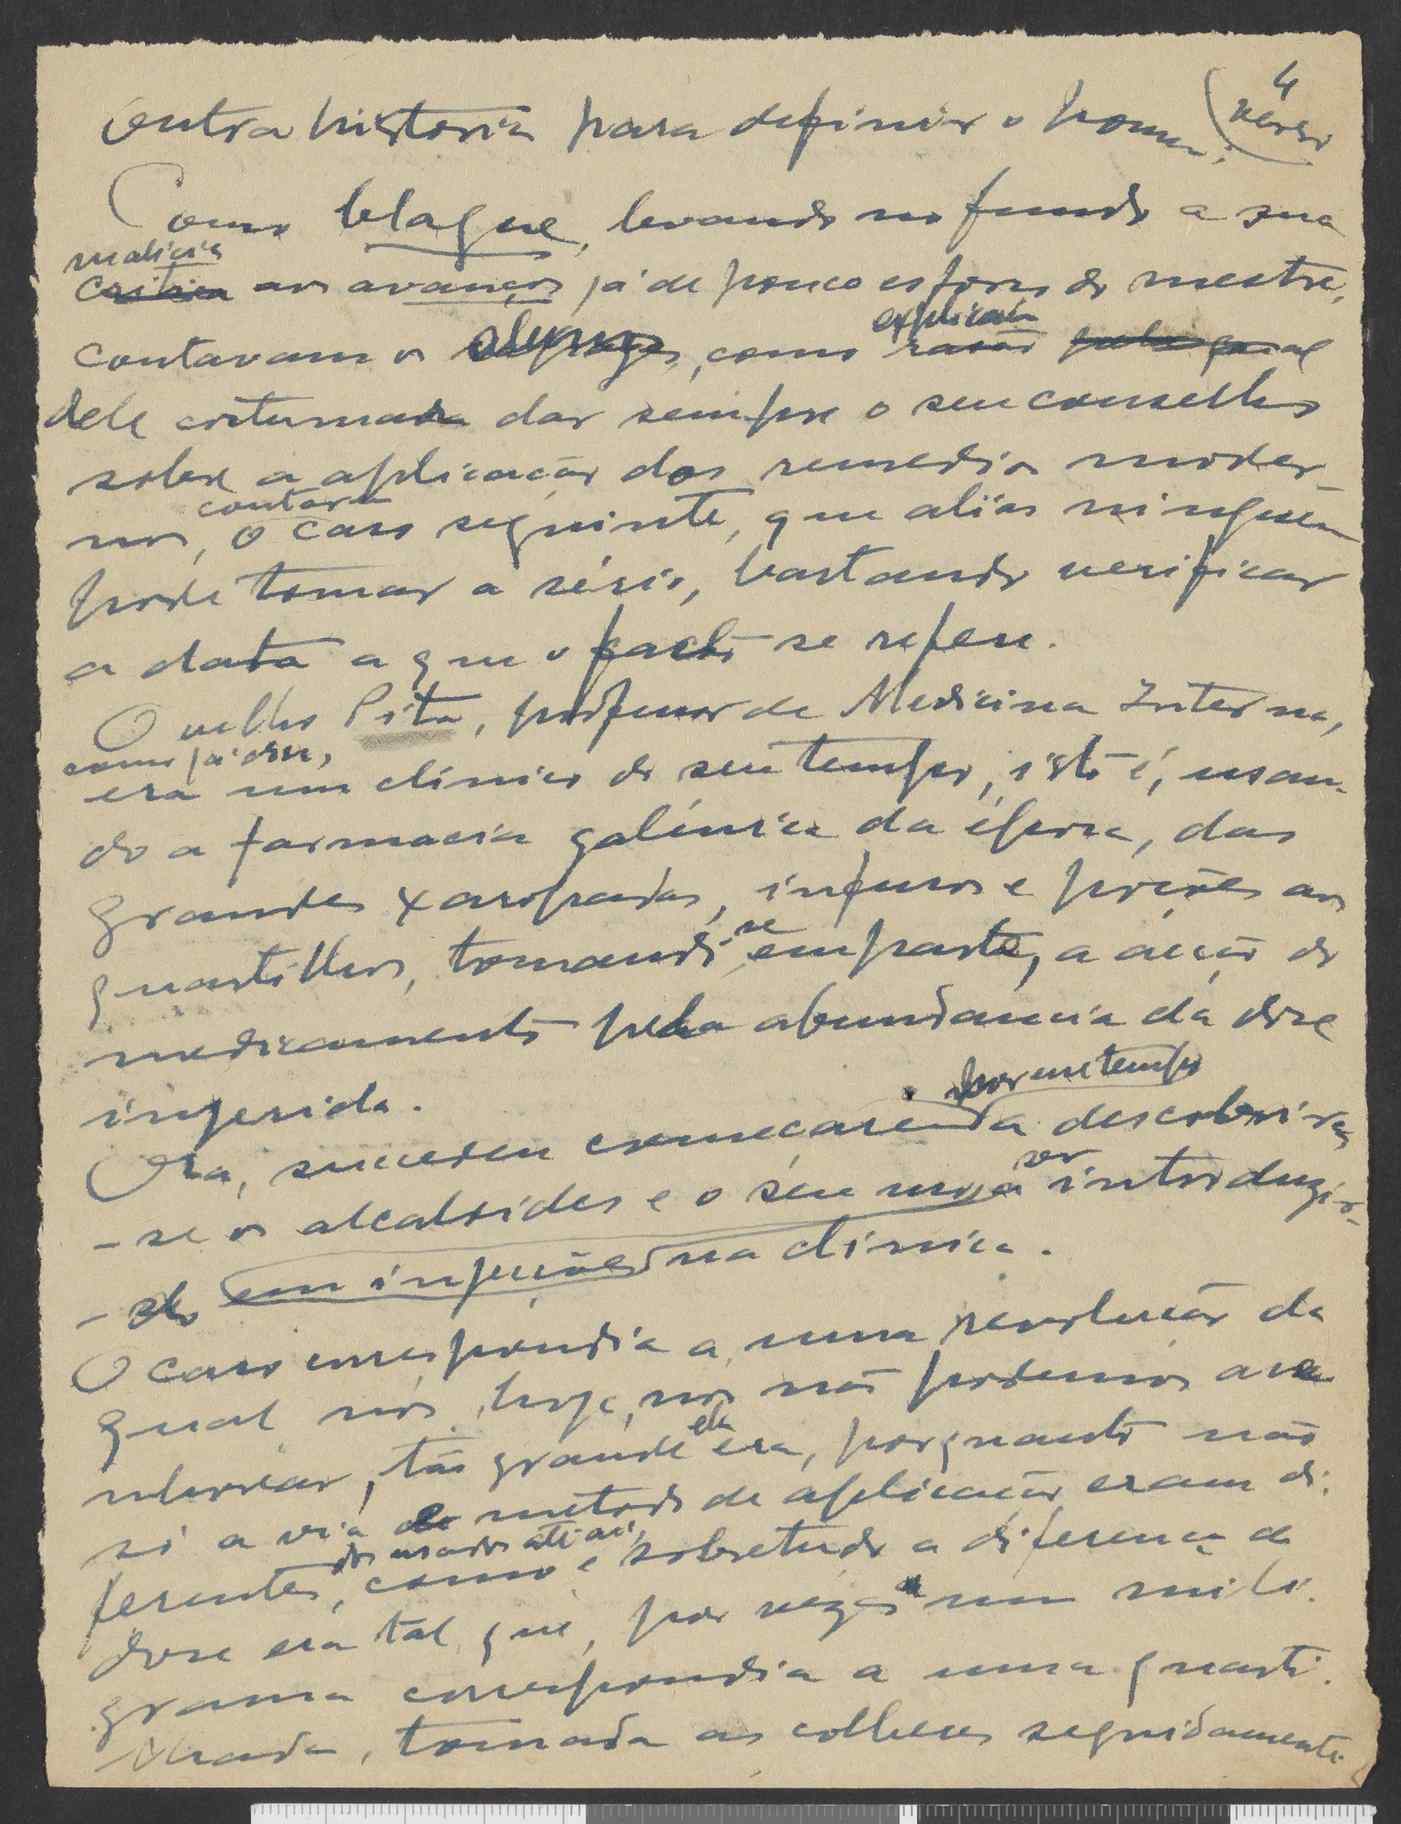 4
verso
Outra historia para definir o homem:
Como blague, levando no fundo a sua
malicia
critica aos avanços já de pouco esforço do mestre,
explicação
contavam os alunos, como razão pela qual
dele costumava dar sempre o seu conselho
sobre a aplicação dos remedios moder-
contava
nos, o caso seguinte, que aliás ninguem
pode tomar a sério, bastando verificar
a data a que o facto se refere.
O velho Pita, professor de Medicina Interna,
como já disse,
era um clinico do seu tempo, isto é, usan-
do a farmacia galénica da época, das
grandes xaropadas, infusos e poções aos
se
quartilhos, tomando em parte, a acção do
medicamento pela abundancia da dose
ingerida.
por um tempo
Ora, sucedeu começarem a descobrir
ser
-se os alcaloides e o seu uso a introduzir-
-se em injecções na clinica.
O caso correspondia a uma revolução da
qual nós, hoje, nos não podemos
ela
tão grande era, porquanto não
só a via e metodo de aplicação eram di-
dos usados até aí,
ferentes, como e sobretudo a diferença da
dose era tal que, por vezes um mili-
grama correspondia a uma quarti-
lhada, tomada as colheres seguidamente